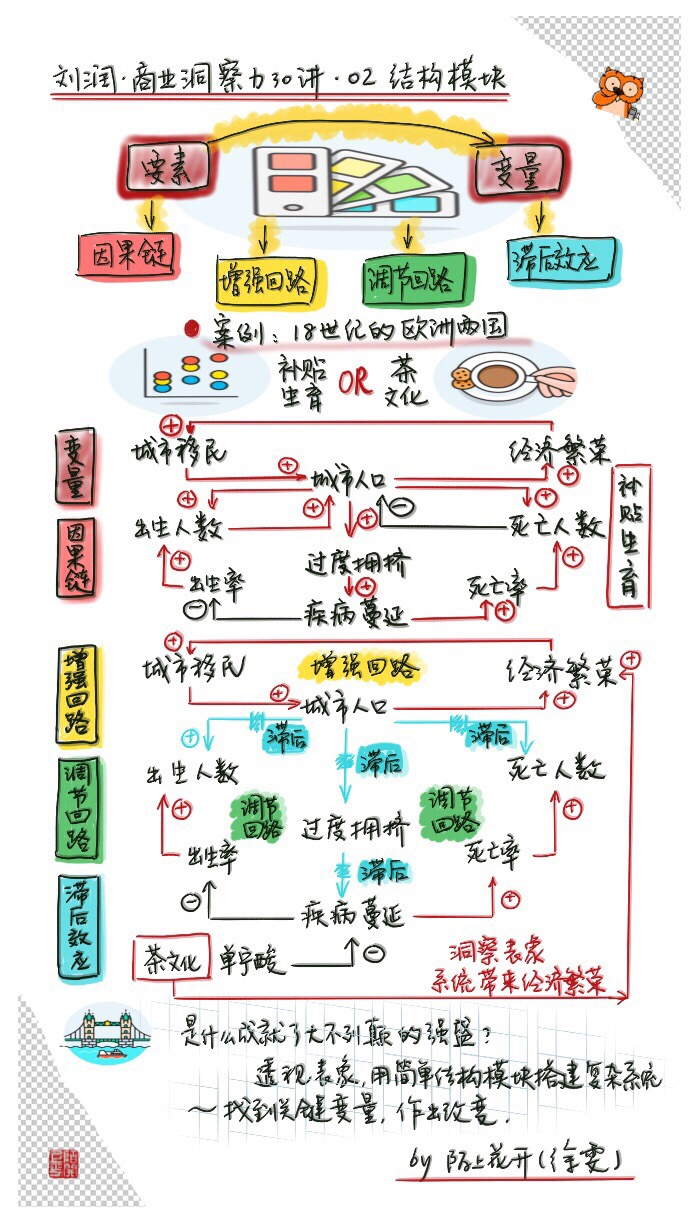 刘润·商业洞察力30讲·02结构模块
要素
变量
因果链
增强回路
调节回路
滞后效应
案例：18世纪的欧洲两国
补贴
生育
OR
茶
文化
变量
因果链
城市移民
经济繁荣
城市人口
出生人数
死亡人数
过度拥挤
出生率
死亡率
疾病蔓延
补贴生育
增强回路
调节回路
滞后效应
城市移民
增强回路
经济繁荣
城市人口
滞后
滞后
滞后
出生人数
死亡人数
调节
回路
过度拥挤
调节
回路
出生率
死亡率
滞后
疾病蔓延
茶文化
单宁酸
洞察表象
系统带来经济繁荣
是什么成就了大不列颠的强盛？
透视表象，用简单结构模块搭建复杂系统
～找到关键变量，作出改变。
by 陌上花开（徐雯）